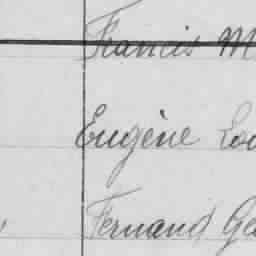 Francis M
Eugène Lou
Fernand Ge